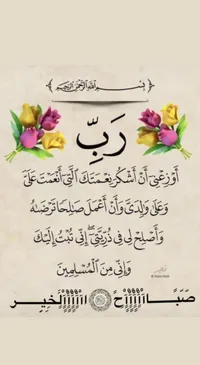 بسم الله الرحمن الرحيم
رَبِّ
أَوْزِعْنِي أَنْ أَشْكُرَ نِعْمَتَكَ الَّتِي أَنْعَمْتَ عَلَيَّ
وَعَلَىٰ وَالِدَيَّ وَأَنْ أَعْمَلَ صَالِحًا تَرْضَاهُ
وَأَصْلِحْ لِي فِي ذُرِّيَّتِي ۖ إِنِّي تُبْتُ إِلَيْكَ
وَإِنِّي مِنَ الْمُسْلِمِينَ
صَبَـَّاااااااح اااااااالخيـر